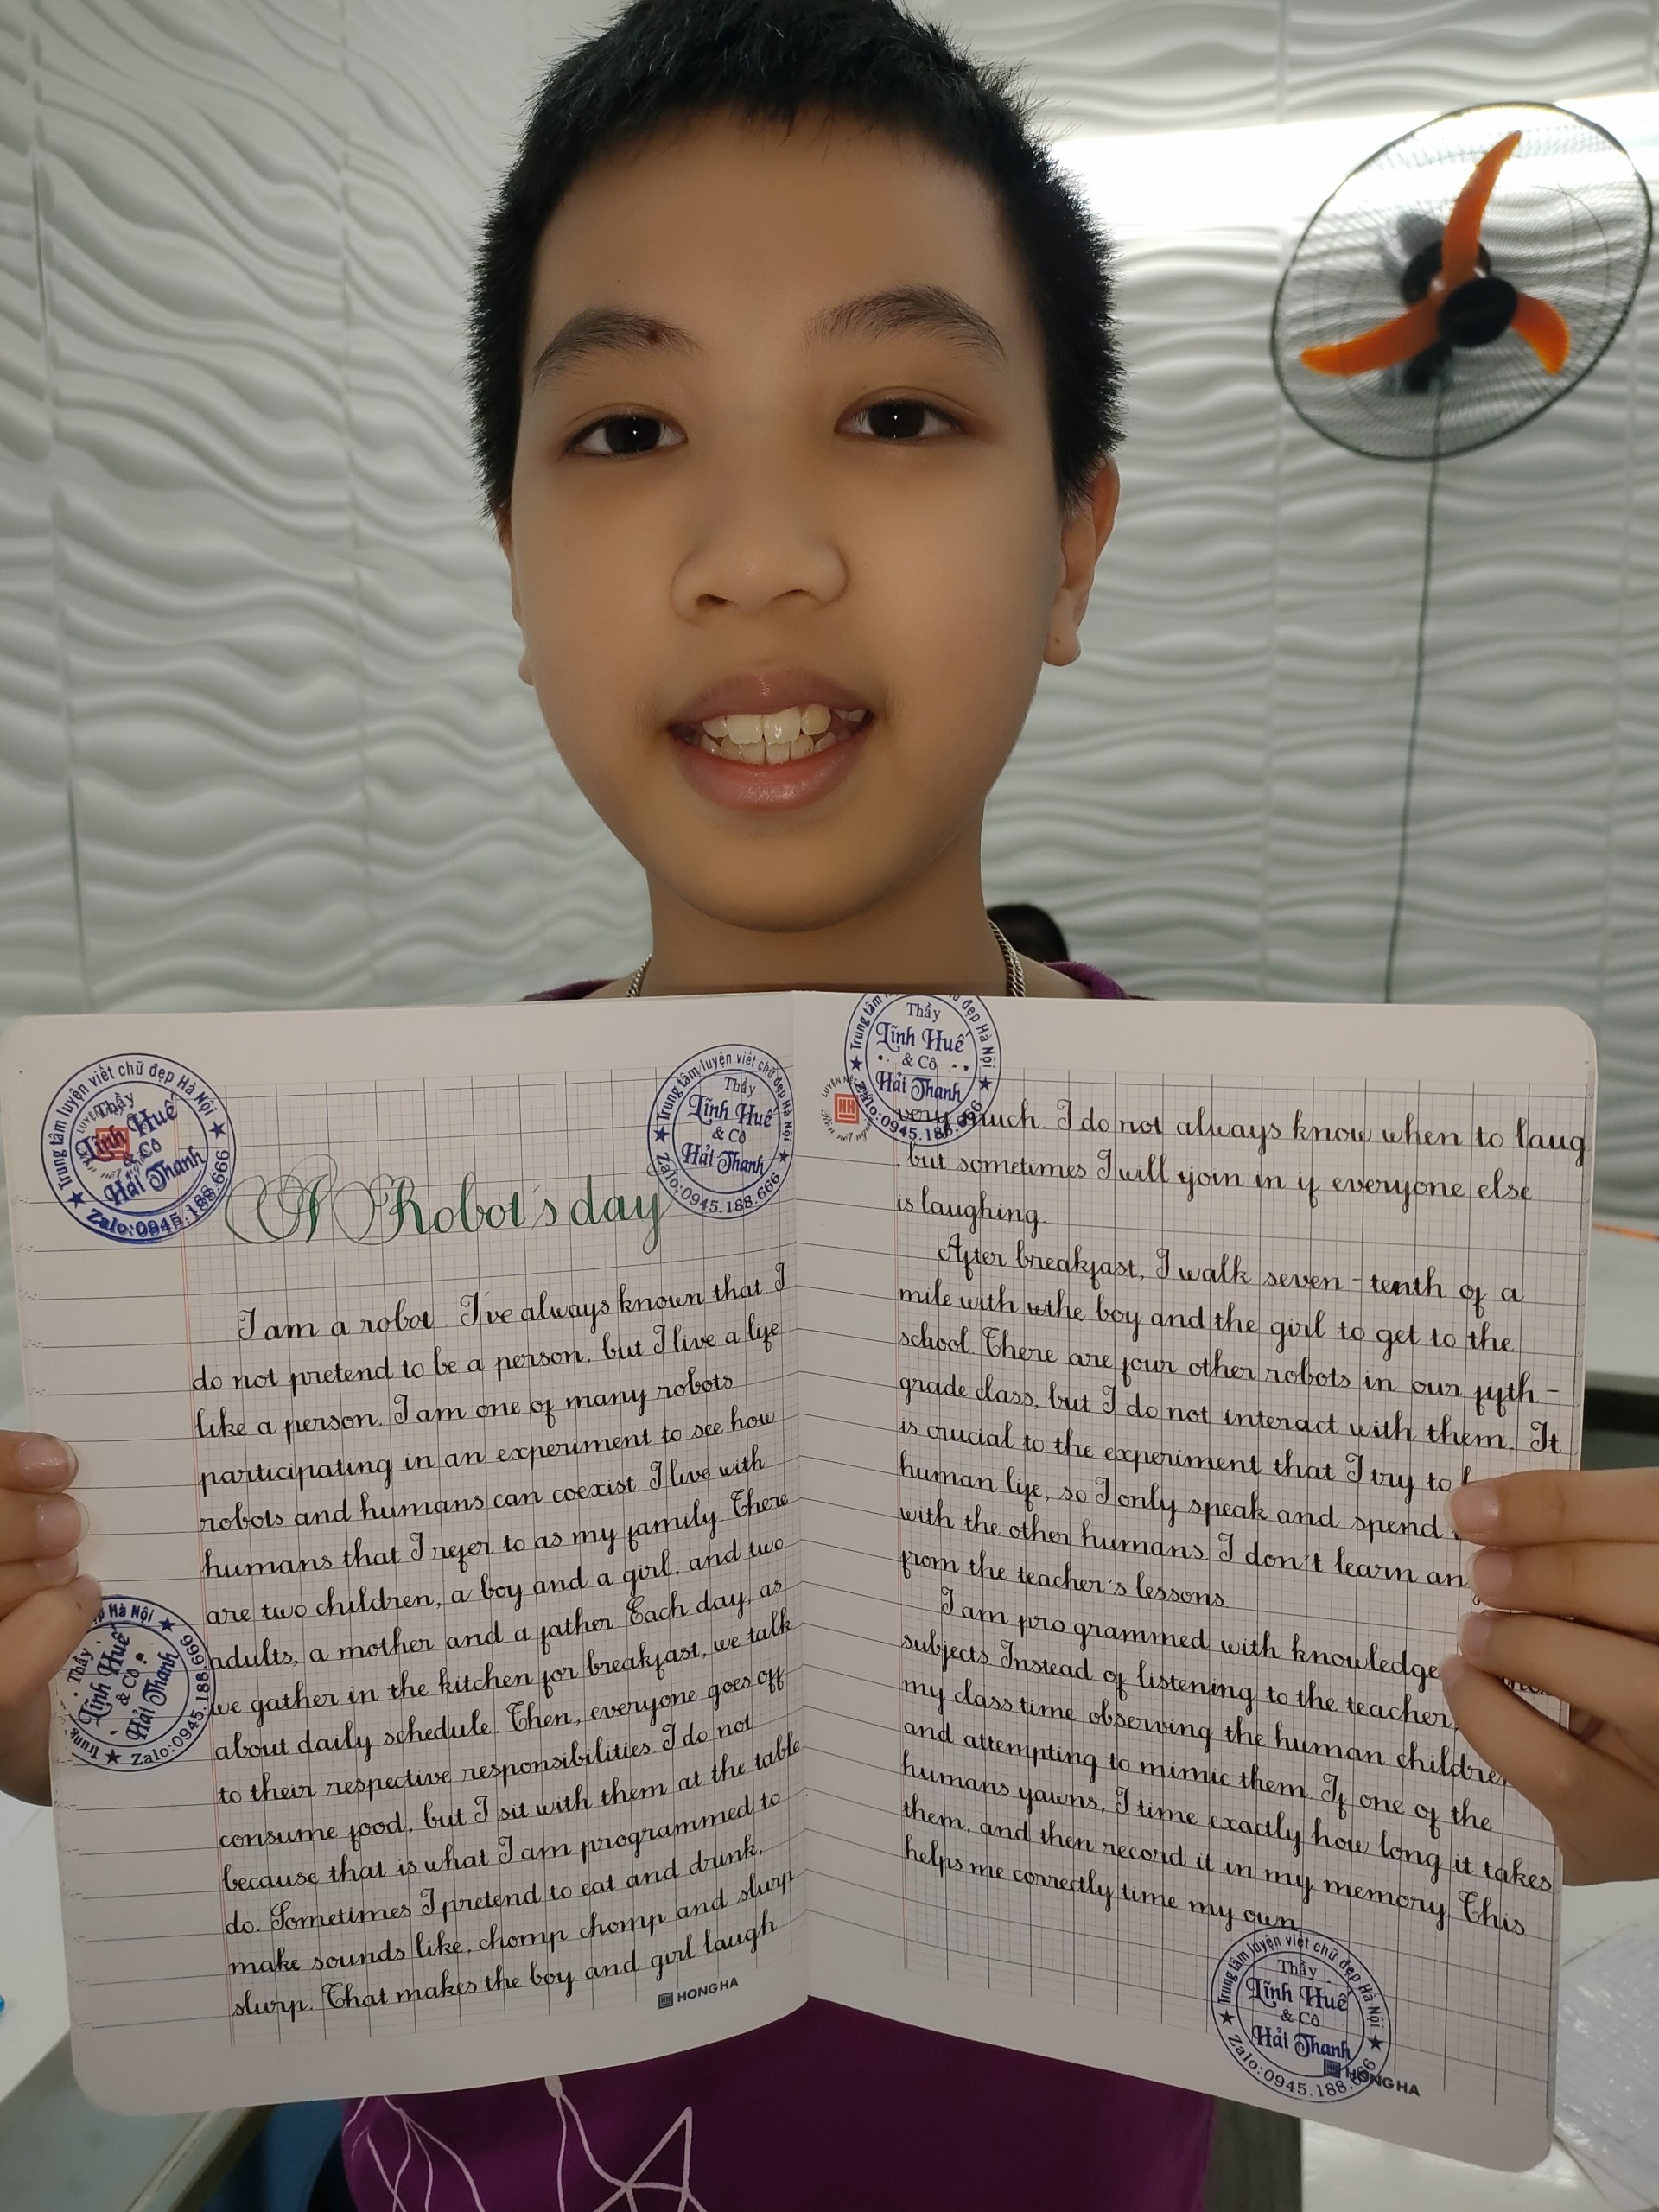 Trung tâm luyện viết chữ đẹp Hà Nội
Thầy
Lĩnh Huế
& Cô
Hải Thanh
Zalo:0945.188.666
Trung tâm luyện viết chữ đẹp Hà Nội
Thầy
Lĩnh Huế
& Cô
Hải Thanh
Zalo:0945.188.666
A Robot's day
I am a robot. I've always known that I
do not pretend to be a person, but I live a life
like a person. I am one of many robots
participating in an experiment to see how
robots and humans can coexist. I live with
humans that I refer to as my family. There
are two children, a boy and a girl, and two
adults, a mother and a father. Each day, as
we gather in the kitchen for breakfast, we talk
about daily schedule. Then, everyone goes off
to their respective responsibilities. I do not
consume food, but I sit with them at the table
because that is what I am programmed to
do. Sometimes I pretend to eat and drink,
make sounds like, chomp chomp and slurp
slurp. That makes the boy and girl laugh
HONG HA
Hà Nội
Thầy
Lĩnh Huế
& Cô
Hải Thanh
Zalo:0945.188.666
Trung tâm đẹp Hà Nội
Thầy
Lĩnh Huế
& Cô
Hải Thanh
Zalo:0945.188.666
very much. I do not always know when to laug
, but sometimes I will join in if everyone else
is laughing.
After breakfast, I walk seven - tenth of a
mile with the boy and the girl to get to the
school. There are four other robots in our fifth -
grade class, but I do not interact with them. It
is crucial to the experiment that I try to
human life, so I only speak and spend
with the other humans. I don't learn an
from the teacher's lessons
I am programmed with knowledge
subjects Instead of listening to the teacher,
my class time observing the human children
and attempting to mimic them. If one of the
humans yawns, I time exactly how long it takes
them, and then record it in my memory. This
helps me correctly time my own.
Trung tâm luyện viết chữ đẹp Hà Nội
Thầy
Lĩnh Huế
& Cô
Hải Thanh
Zalo:0945.188.666
HONG HA